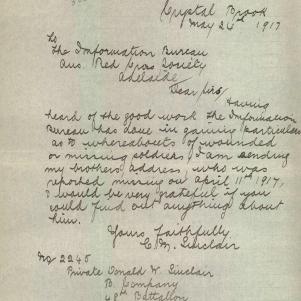 Crystal Brook
May 24th 1917
To
The Information Bureau
Aus. Red Cross Society
Adelaide
Dear Sirs/
Having
heard of the good work the Information
Bureau has done in gaining particulars
as to whereabouts of wounded
or missing soldiers, I am sending
my brothers address, who was
reported missing on April 11th 1917,
I would be very grateful if you
could find out anything about
him.
Yours faithfully
C. M. Sinclair
No 2245
Private Donald W. Sinclair
B. Company
48th Battalion